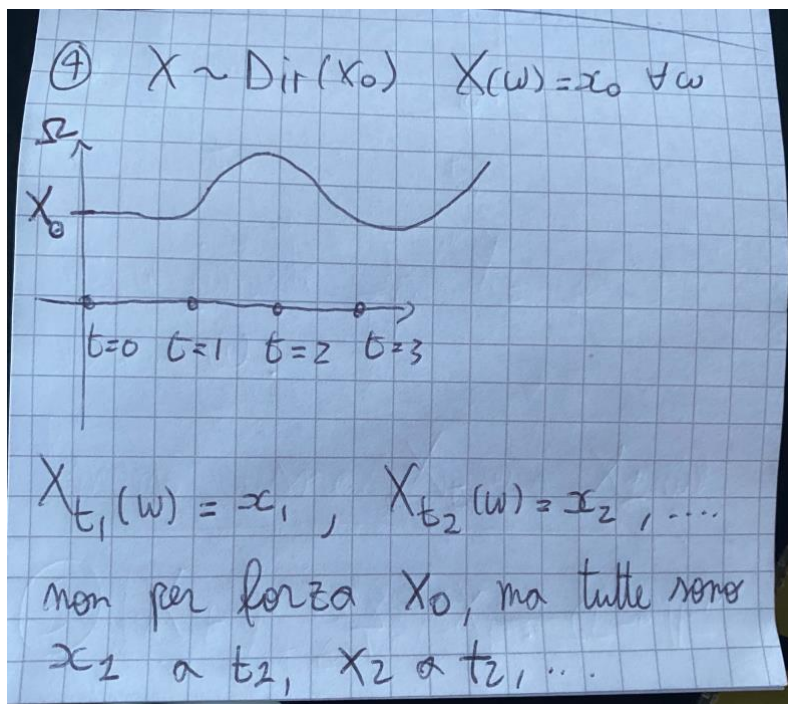 ④ X ~ Dir(x₀) X(ω)=x₀ ∀ω
Ω
X₀
t=0 t=1 t=2 t=3
X_t₁(ω) = x₁, X_t₂(ω) = x₂, ....
non per forza X₀, ma tutte sono
x₁ a t₁, x₂ a t₂, ...